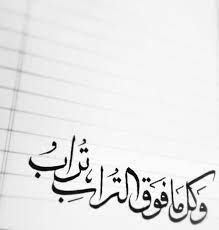 وكل ما فوق الترابِ تُرابُ